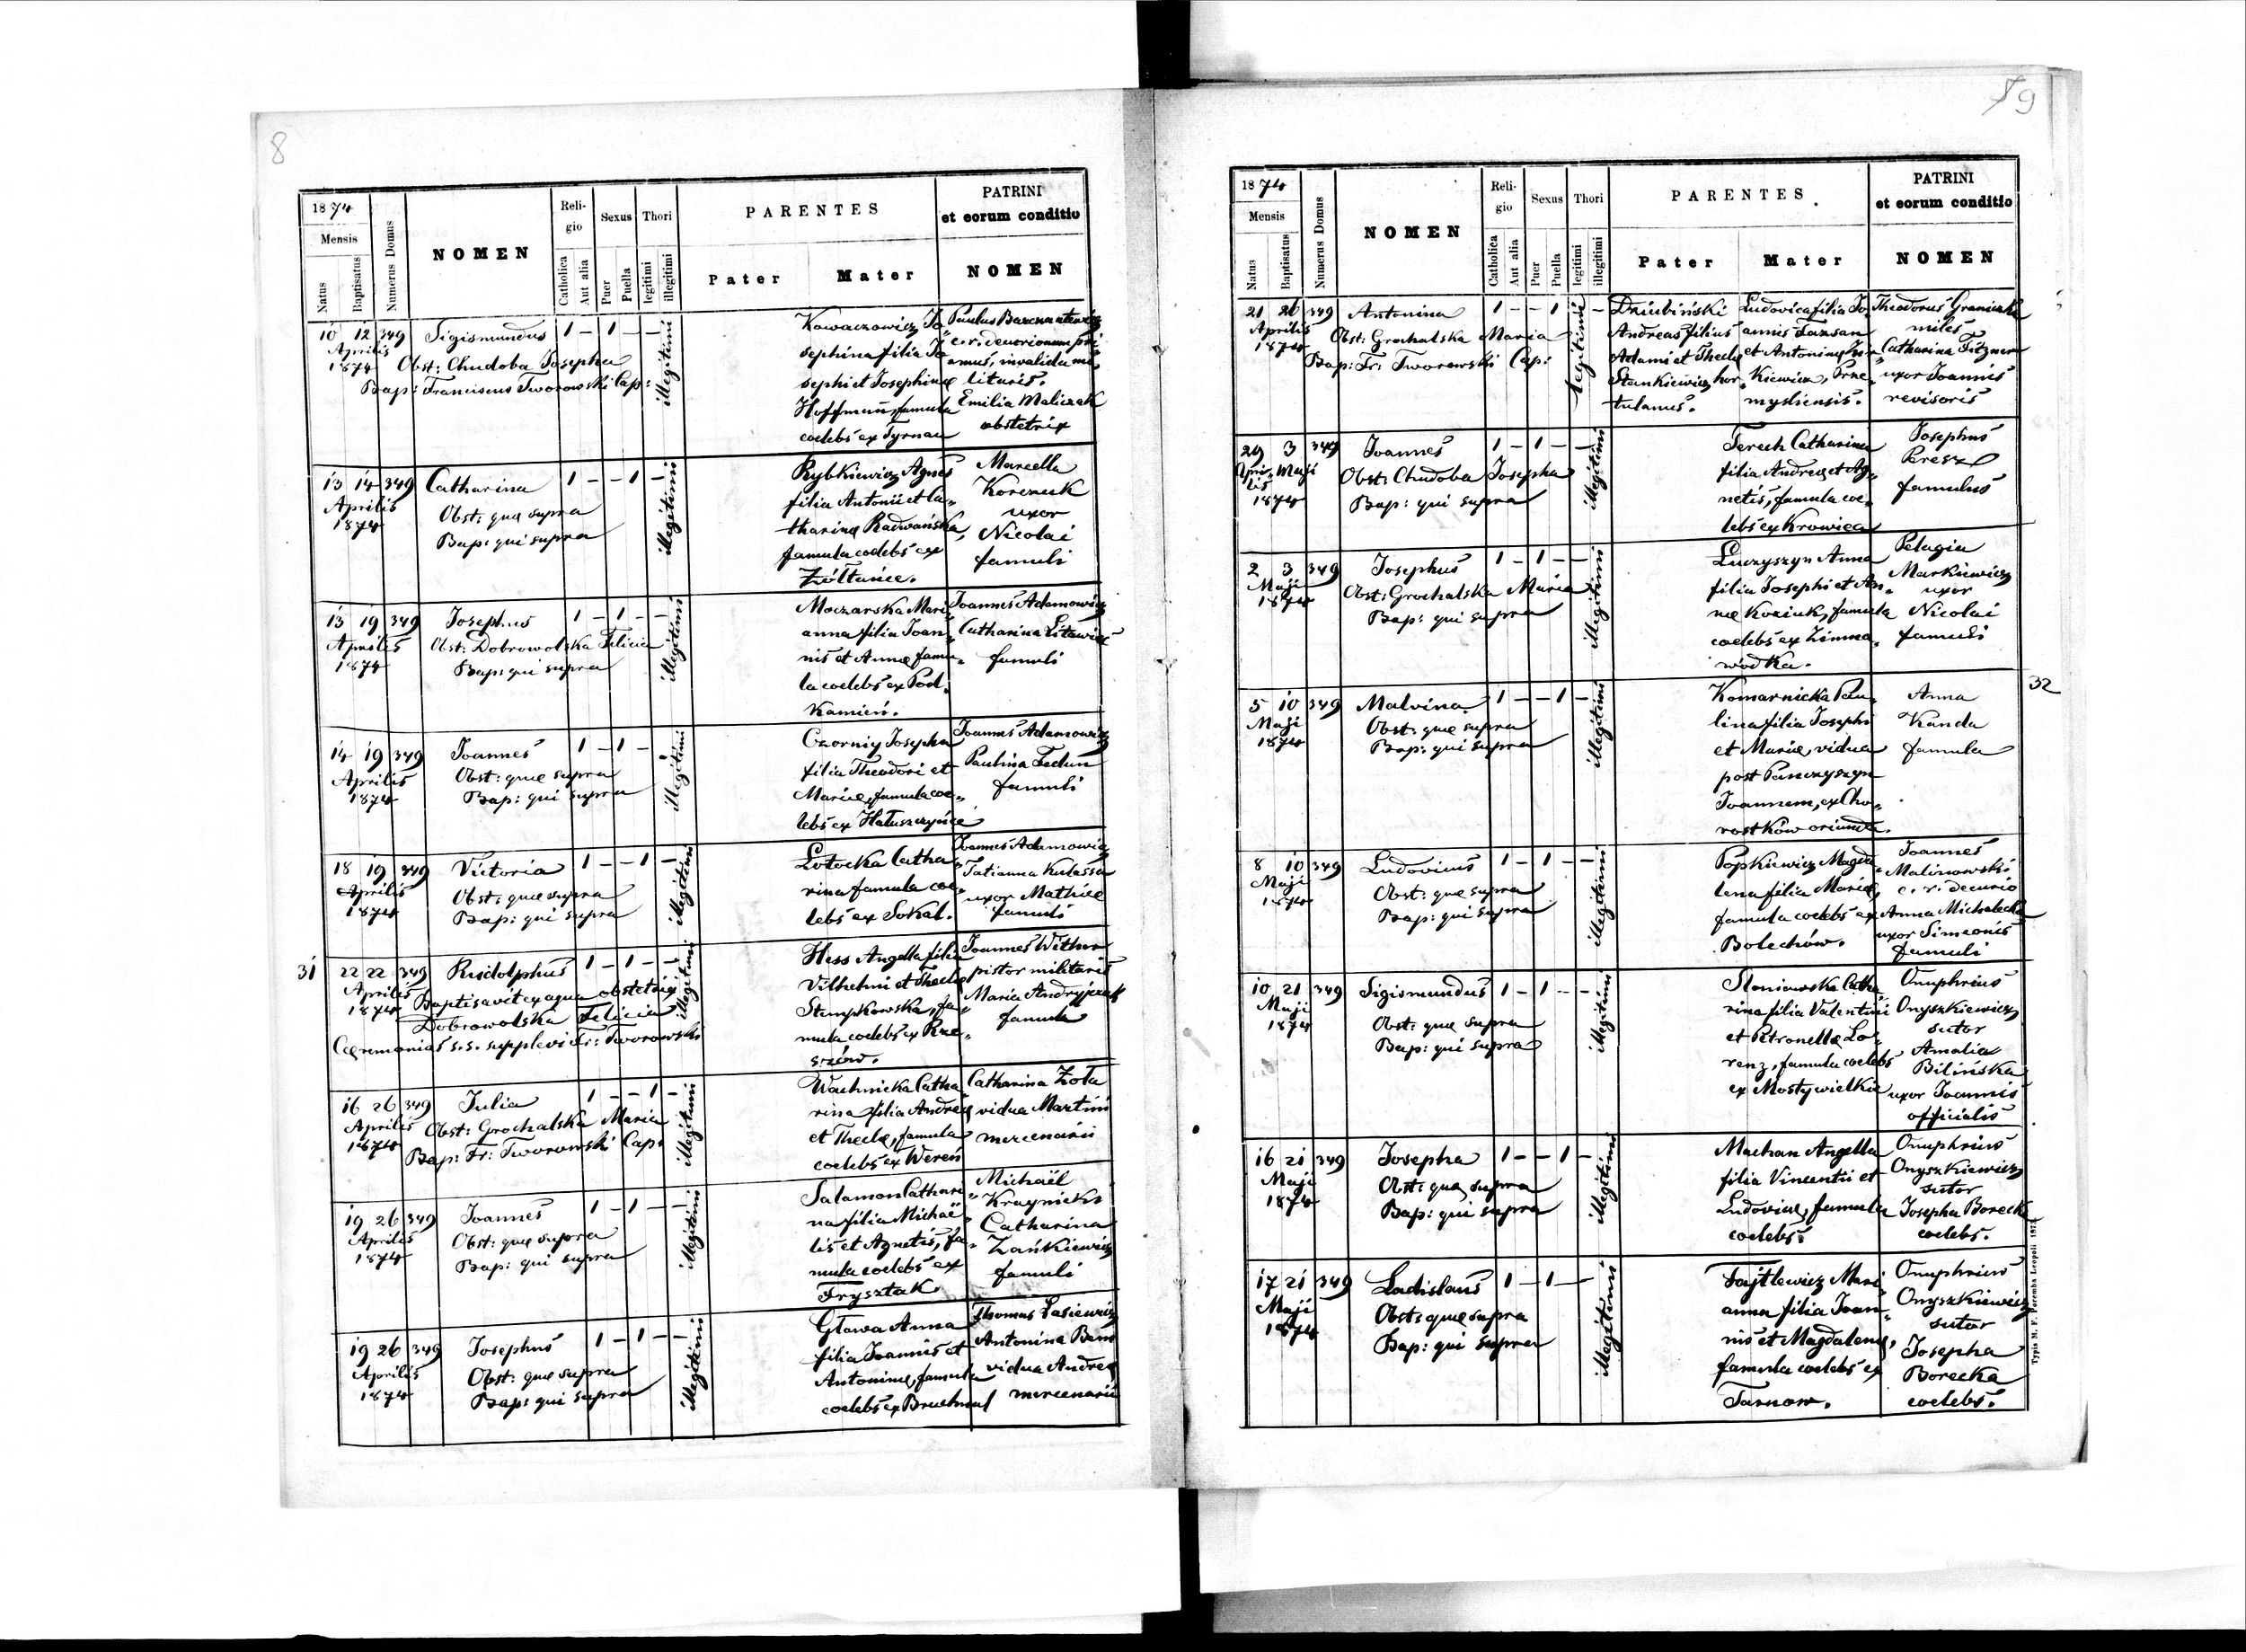 8
1874
Mensis
Natus
Baptisatus
Numerus Domus
NOMEN
Reli-
gio
Catholica
Aut alia
Sexus
Puer
Puella
Thori
legitimi
illegitimi
PARENTES
Pater
Mater
PATRINI
et eorum conditio
NOMEN
10 12 349 Sigismundus 1 - 1 - -
Aprilis
1874
Obst: Chudoba Josepha
Bap: Franciscus Tworowski Cap:
illegitimi
Kowaczowicz Jo„
sephina filia Jo„
sephi et Josephinæ
Hoffmann, famula
coelebs ex Tyrnau
Paulus
c. r. decurionum pri„
anus, invalidus mi„
litaris.
Emilia Maliczek
obstetrix
13 14 349 Catharina 1 - - 1 -
Aprilis
1874
Obst: quæ supra
Bap: qui supra
illegitimi
Rybkiewicz Agnes
filia Antonii et Ca„
tharinæ Radwańska,
famula coelebs ex
Żółtańce.
Marcella
Korczuk
uxor
Nicolai
famuli
13 19 349 Josephus 1 - 1 - -
Aprilis
1874
Obst: Dobrowolska Felicia
Bap: qui supra
illegitimi
Moczarska Mari„
anna filia Joan„
nis et Annæ famu„
la coelebs ex Pod„
kamień.
Joannes Adamowicz
Catharina Litawiec
famuli
14 19 349 Joannes 1 - 1 - -
Aprilis
1874
Obst: quæ supra
Bap: qui supra
illegitimi
Czorniy Josepha
filia Theodori et
Mariæ, famula coe„
lebs ex Hałuszczyńce
Joannes Adamowicz
Paulina Fedun
famuli
18 19 349 Victoria 1 - - 1 -
Aprilis
1874
Obst: quæ supra
Bap: qui supra
illegitimi
Łotocka Catha„
rina famula coe„
lebs ex Sokal.
Joannes Adamowicz
Tatianna Kulassa
uxor Mathiæ
famuli
31
22 22 349 Rudolphus 1 - 1 - -
Aprilis
1874
Baptisavit ex aqua obstetrix
Dobrowolska Felicia
Cæremonias s.s. supplevi Fr: Tworowski
illegitimi
Hess Angella filia
Vilhelmi et Theclæ
Stempkowska, fa„
mula coelebs ex Rze„
szów.
Joannes Withur
pistor militaris
Maria Andryjczuk
famula
16 26 349 Julia 1 - - 1 -
Aprilis
1874
Obst: Grochalska Maria
Bap: Fr: Tworowski Cap:
illegitimi
Wachnicka Catha„
rina filia Andreæ
et Theclæ, famula
coelebs ex Wereń
Catharina Zoła
vidua Martini
mercenarii
19 26 349 Joannes 1 - 1 - -
Aprilis
1874
Obst: quæ supra
Bap: qui supra
illegitimi
Salamon Cathari„
na filia Michaë„
lis et Agnetis, fa„
mula coelebs ex
Frysztak
Michaël
Kraynicki
Catharina
Zańkiewicz
famuli
19 26 349 Josephus 1 - 1 - -
Aprilis
1874
Obst: quæ supra
Bap: qui supra
illegitimi
Głowa Anna
filia Joannis et
Antoninæ, famula
coelebs ex Bruchnal
Thomas Łasiewicz
Antonina Bam
vidua Andreæ
mercenarii
9
1874
Mensis
Natus
Baptisatus
Numerus Domus
NOMEN
Reli-
gio
Catholica
Aut alia
Sexus
Puer
Puella
Thori
legitimi
illegitimi
PARENTES
Pater
Mater
PATRINI
et eorum conditio
NOMEN
21 26 349 Antonina 1 - - 1 -
Aprilis
1874
Obst: Grochalska Maria
Bap: Fr: Tworowski Cap:
legitimi
Dziubiński
Andreas filius
Adami et Theclæ
Stankiewicz hor„
tulanus.
Ludovica filia Jo„
annis Tarsan
et Antoninæ Zin„
kiewicz, Prze„
mysliensis.
Theodorus Graniczka
miles
Catharina Fitzner
uxor Joannis
revisoris
29 3 349 Joannes 1 - 1 - -
Apri„ Maji
lis
1874
Obst: Chudoba Josepha
Bap: qui supra
illegitimi
Terech Catharina
filia Andreæ et Ag„
netis, famula coe„
lebs ex Krowica
Josephus
Peresz
famulus
2 3 349 Josephus 1 - 1 - -
Maji
1874
Obst: Grochalska Maria
Bap: qui supra
illegitimi
Łuczyszyn Anna
filia Josephi et An„
næ Koziuk, famula
coelebs ex Zimna„
wodka.
Pelagia
Markiewicz
uxor
Nicolai
famuli
5 10 349 Malvina 1 - - 1 -
Maji
1874
Obst: quæ supra
Bap: qui supra
illegitimi
Komarnicka Pau„
lina filia Josephi
et Mariæ, vidua
post Panczyszyn
Joannem, ex Cho„
rostków oriunda.
Anna
Kanda
famula
32
8 10 349 Ludovicus 1 - 1 - -
Maji
1874
Obst: quæ supra
Bap: qui supra
illegitimi
Popkiewicz Magda„
lena filia Mariæ,
famula coelebs ex
Bolechów.
Joannes
Malinowski
c. r. decurio
Anna Michalecka
uxor Simeonis
famuli
10 21 349 Sigismundus 1 - 1 - -
Maji
1874
Obst: quæ supra
Bap: qui supra
illegitimi
Słoniowska Catha„
rina filia Valentini
et Petronellæ Lo„
renz, famula coelebs
ex Mosty wielkie
Onuphrius
Onyszkiewicz
sutor
Amalia
Bilińska
uxor Joannis
officialis
16 21 349 Josepha 1 - - 1 -
Maji
1874
Obst: quæ supra
Bap: qui supra
illegitimi
Machan Angella
filia Vincentii et
Ludovicæ, famula
coelebs
Onuphrius
Onyszkiewicz
sutor
Josepha Borecka
coelebs.
17 21 349 Ladislaus 1 - 1 - -
Maji
1874
Obst: quæ supra
Bap: qui supra
illegitimi
Fajtlewicz Mari„
anna filia Joan„
nis et Magdalenæ,
famula coelebs ex
Tarnow.
Onuphrius
Onyszkiewicz
sutor
Josepha
Borecka
coelebs.
Typis M. F. Poremba Leopoli